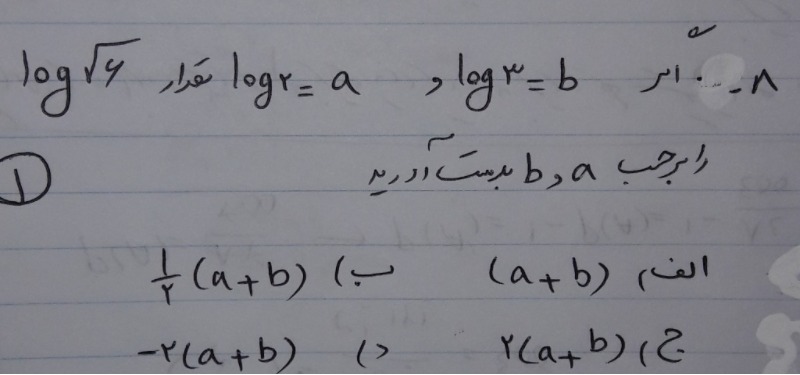 ۸- اگر log۳=b و log۲=a مقدار log√۶
را برحسب a و b بدست آورید
①
الف) (a+b) ب) ۱/۲(a+b)
ج) ۲(a+b) د) -۲(a+b)